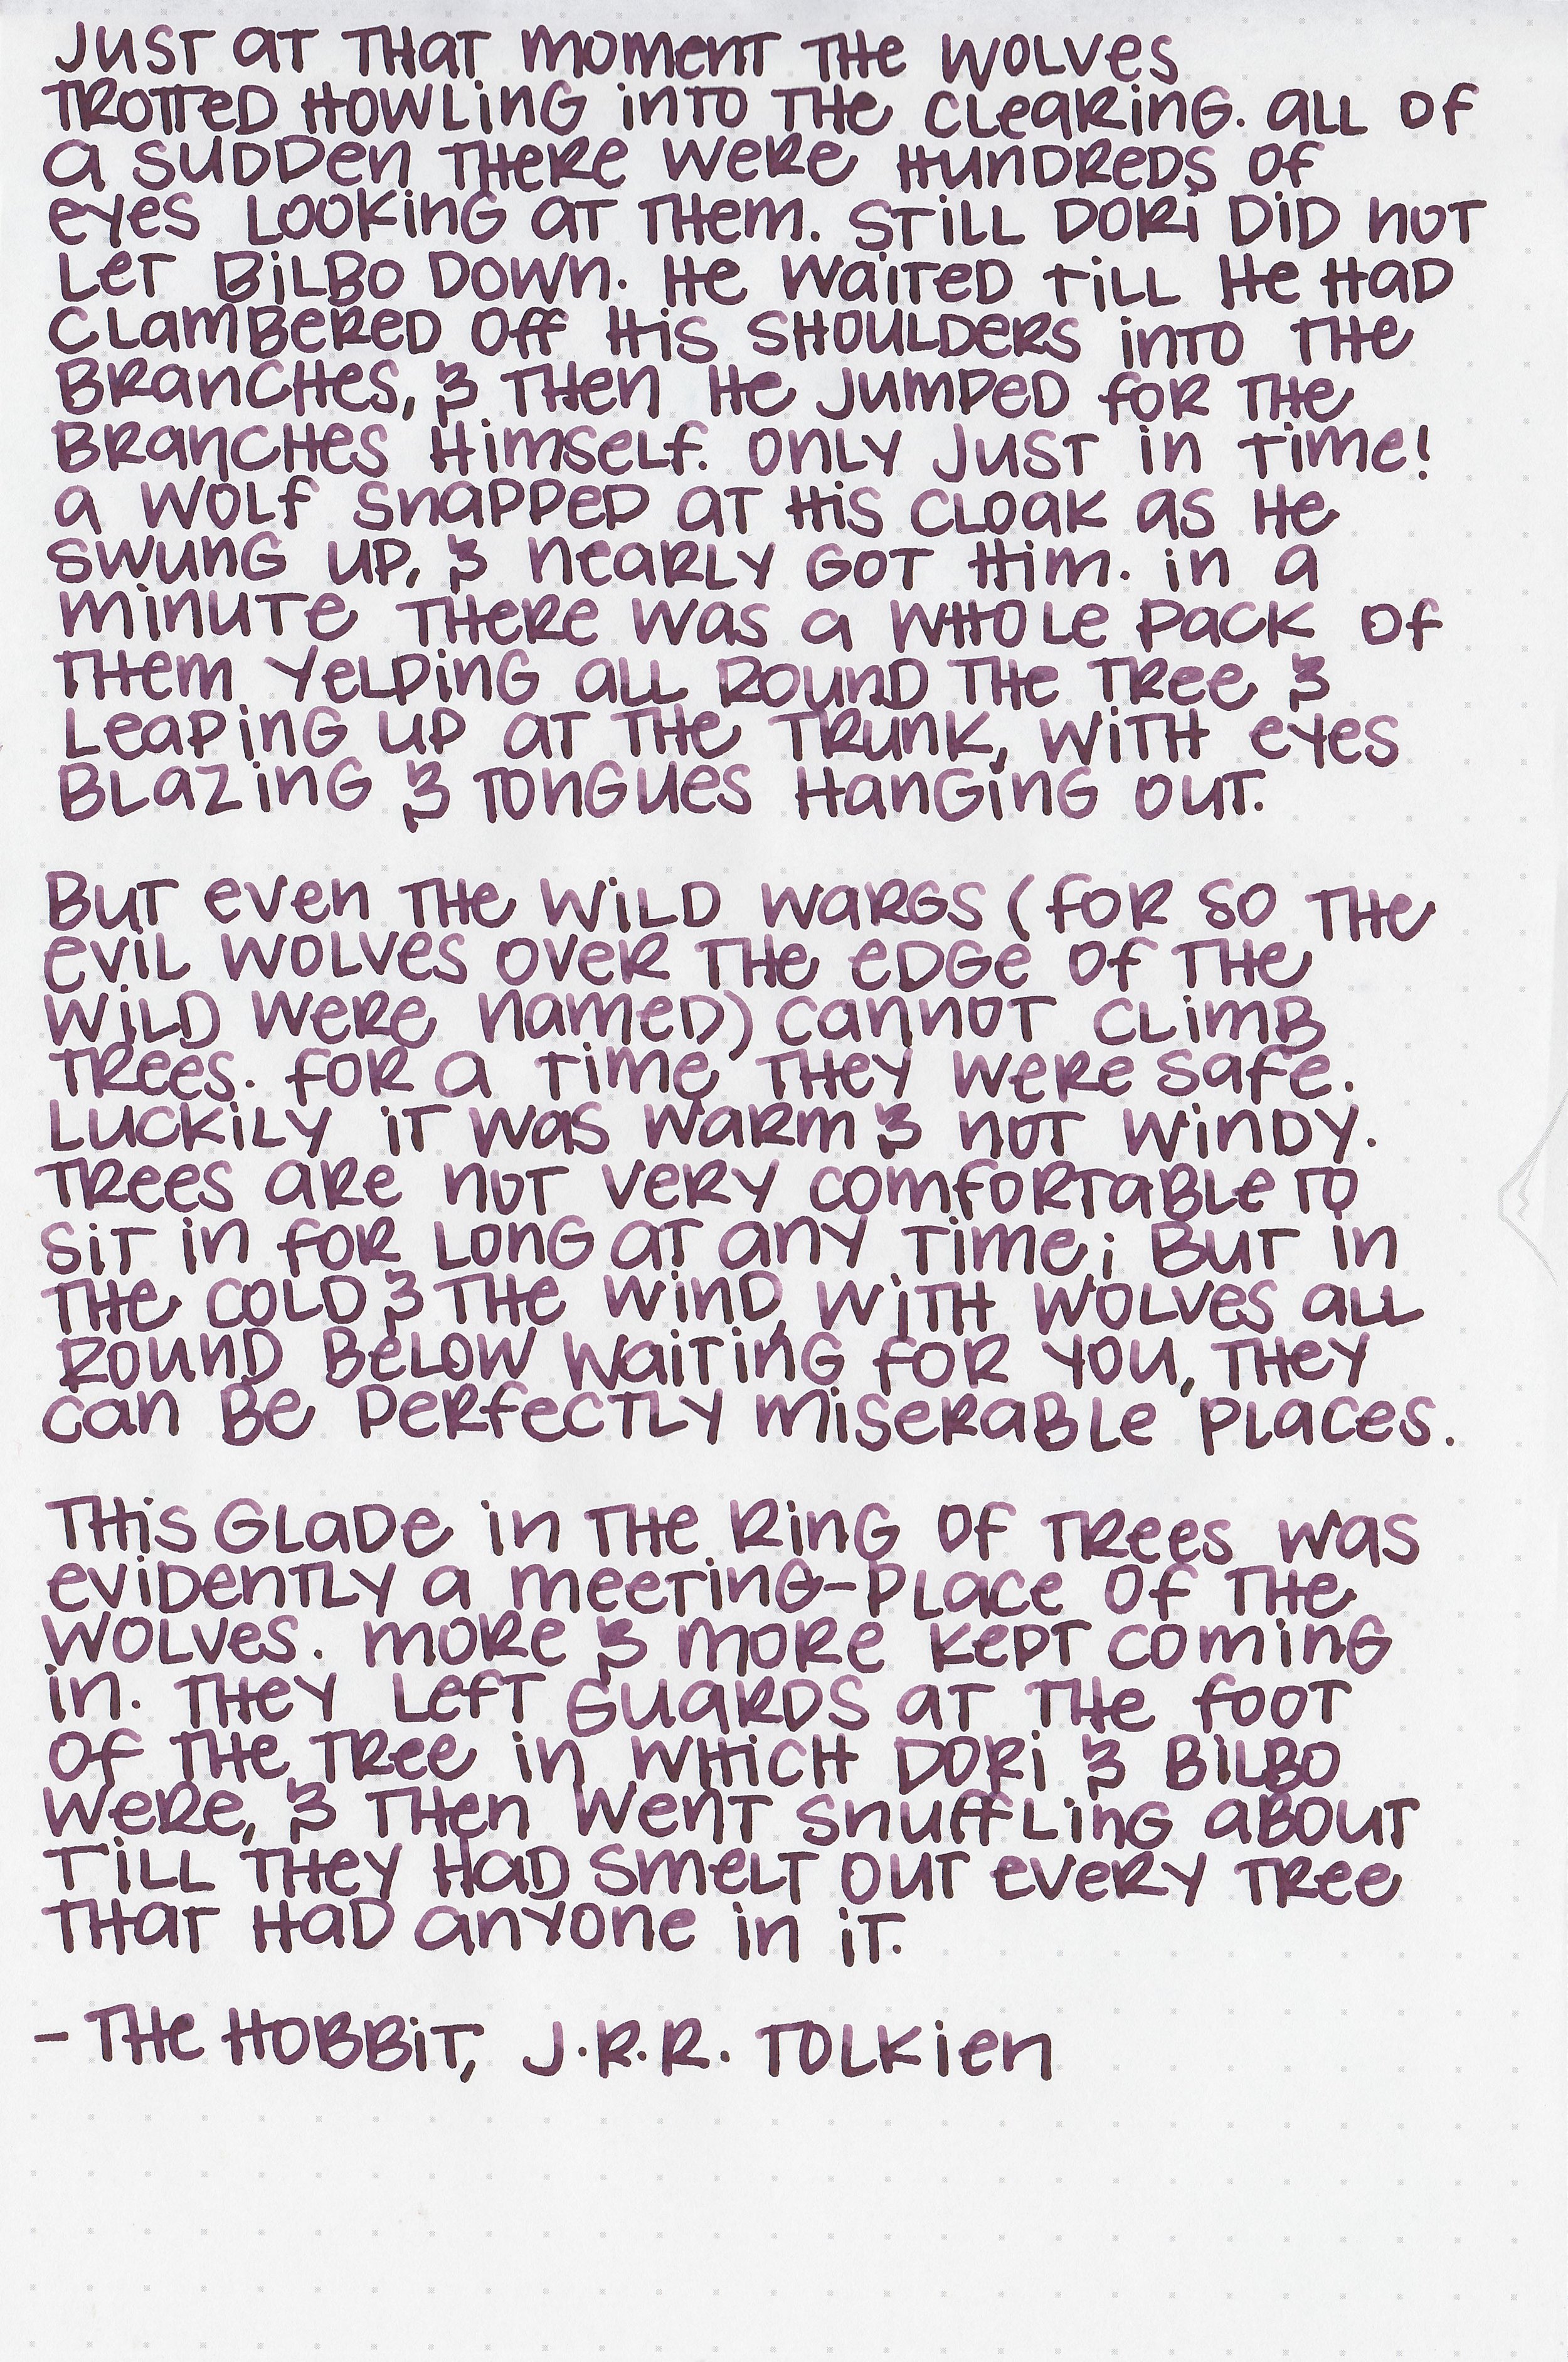 Just at that moment the wolves
trotted howling into the clearing. All of
a sudden there were hundreds of
eyes looking at them. Still Dori did not
let Bilbo down. He waited till he had
clambered off his shoulders into the
branches, & then he jumped for the
branches himself. Only just in time!
A wolf snapped at his cloak as he
swung up, & nearly got him. In a
minute there was a whole pack of
them yelping all round the tree &
leaping up at the trunk, with eyes
blazing & tongues hanging out.

But even the wild Wargs (for so the
evil wolves over the edge of the
wild were named) cannot climb
trees. For a time they were safe.
Luckily it was warm & not windy.
Trees are not very comfortable to
sit in for long at any time; but in
the cold & the wind, with wolves all
round below waiting for you, they
can be perfectly miserable places.

This glade in the ring of trees was
evidently a meeting-place of the
wolves. More & more kept coming
in. They left guards at the foot
of the tree in which Dori & Bilbo
were, & then went snuffling about
till they had smelt out every tree
that had anyone in it.

- The Hobbit, J.R.R. Tolkien